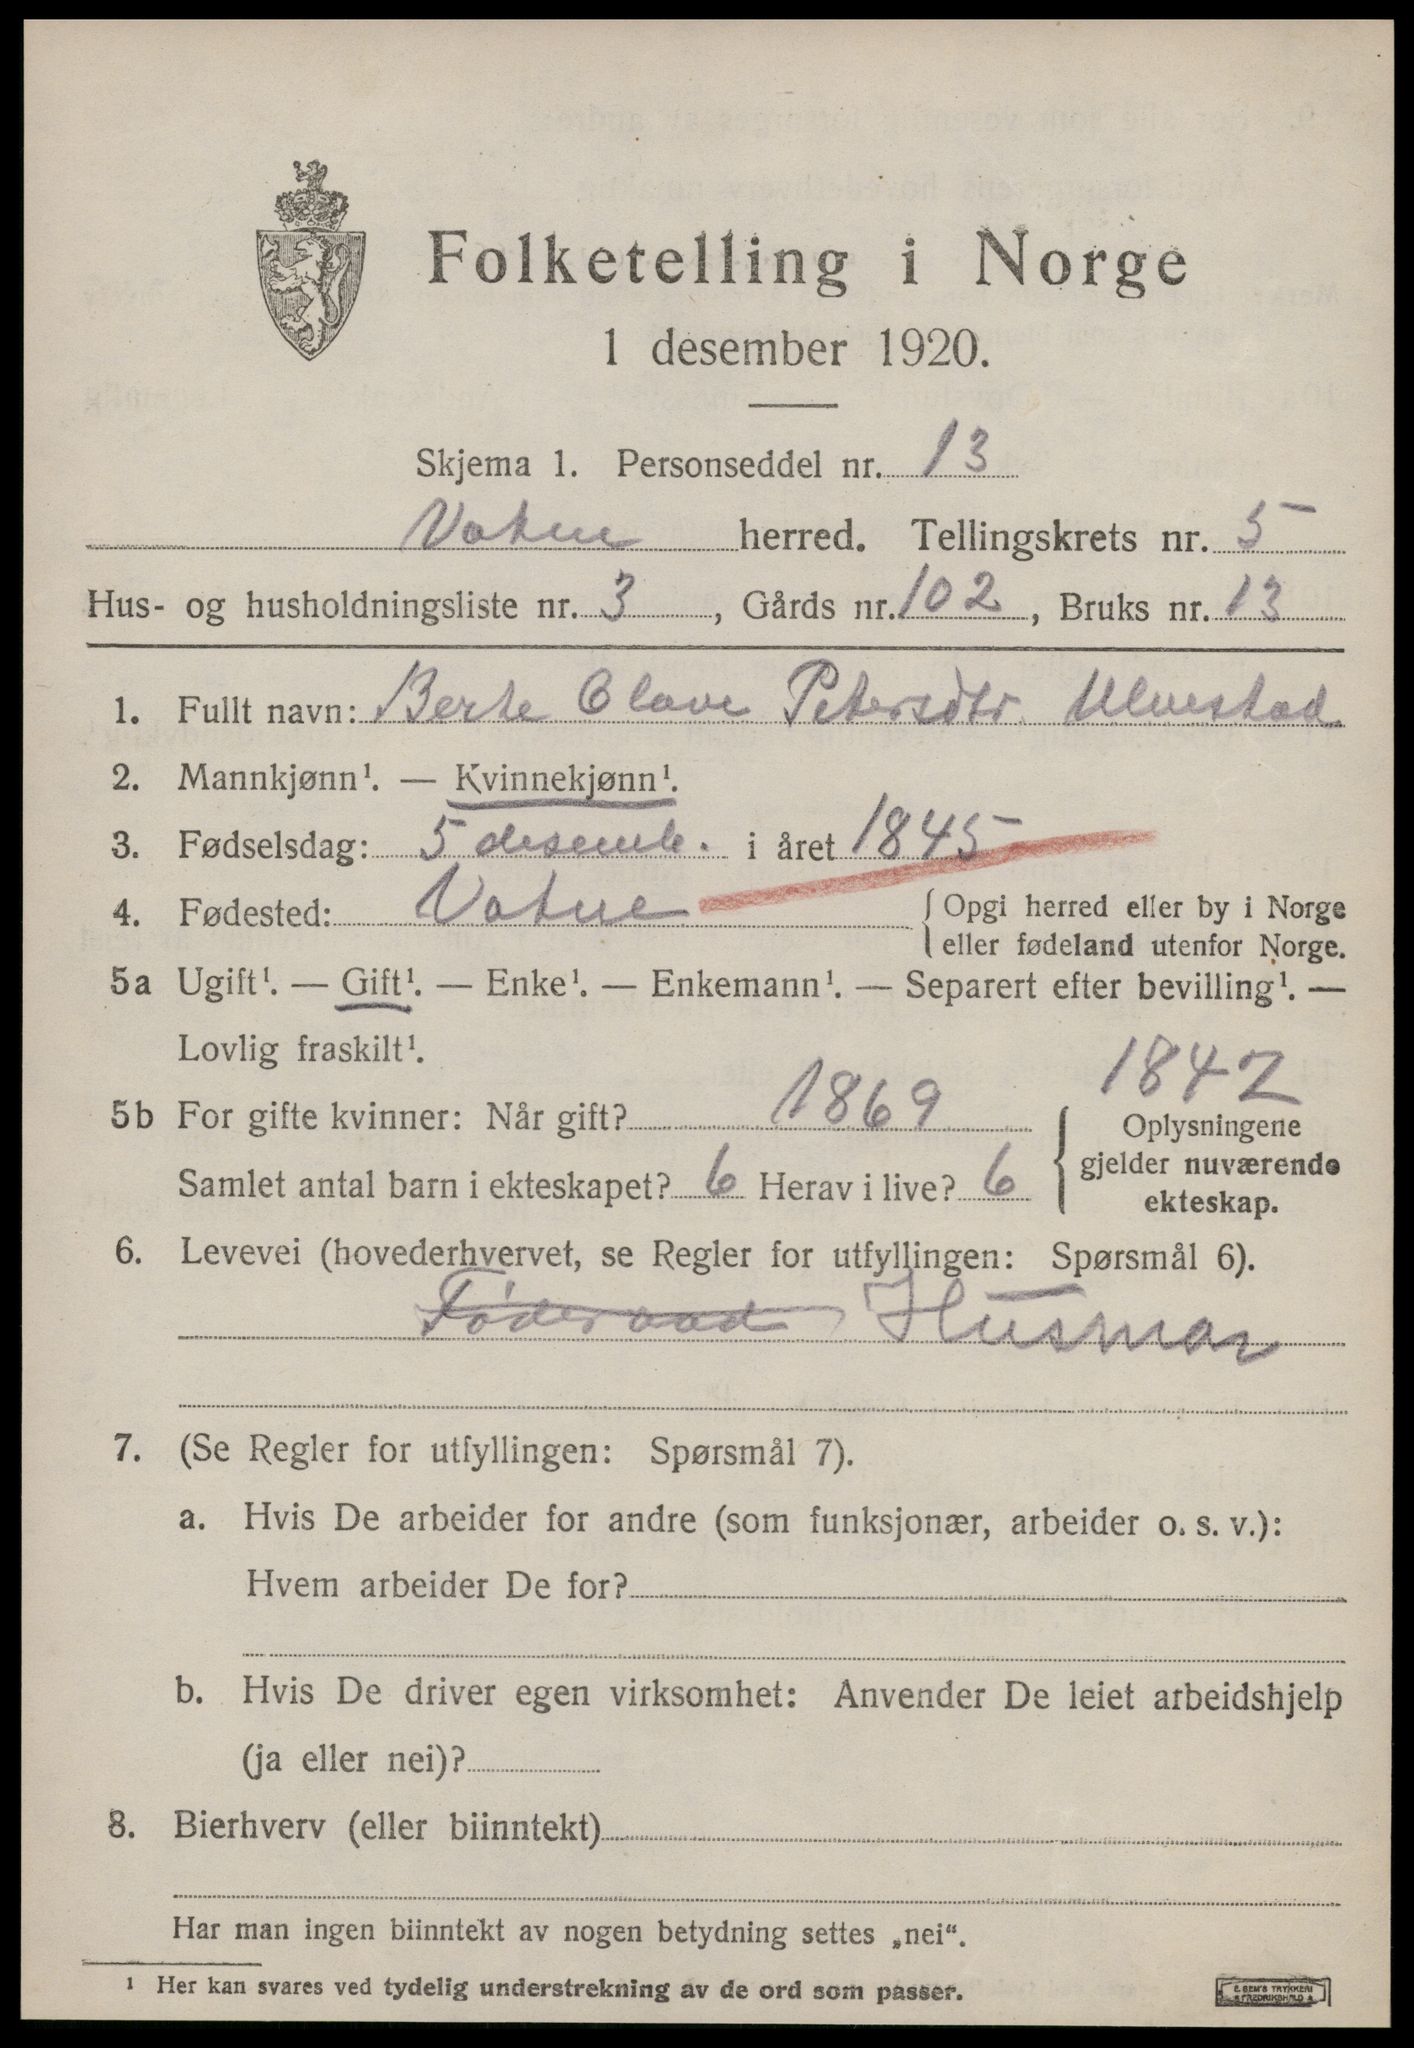 Folketelling i Norge
1 desember 1920.
Skjema 1. Personseddel nr. 13
Vatne herred. Tellingskrets nr. 5
Hus- og husholdningsliste nr. 3, Gårds nr. 102, Bruks nr. 13
1. Fullt navn: Berte Olave Petersdtr. Ulvestad
2. Mannkjønn¹. — Kvinnekjønn¹.
3. Fødselsdag: 5 desemb. i året 1845
4. Fødested: Vatne {Opgi herred eller by i Norge
eller fødeland utenfor Norge.
5a Ugift¹. — Gift¹. — Enke¹. — Enkemann¹. — Separert efter bevilling¹. —
Lovlig fraskilt¹.
1842
5b For gifte kvinner: Når gift? 1869
Samlet antal barn i ekteskapet? 6 Herav i live? 6
{Oplysningene
gjelder nuværende
ekteskap.
6. Levevei (hovederhvervet, se Regler for utfyllingen: Spørsmål 6).
Føderaad Husman
7. (Se Regler for utfyllingen: Spørsmål 7).
a. Hvis De arbeider for andre (som funksjonær, arbeider o. s. v.):
Hvem arbeider De for?
b. Hvis De driver egen virksomhet: Anvender De leiet arbeidshjelp
(ja eller nei)?
8. Bierhverv (eller biinntekt)
Har man ingen biinntekt av nogen betydning settes „nei“.
¹ Her kan svares ved tydelig understrekning av de ord som passer.
E. SEM'S TRYKKERI
FREDRIKSHALD